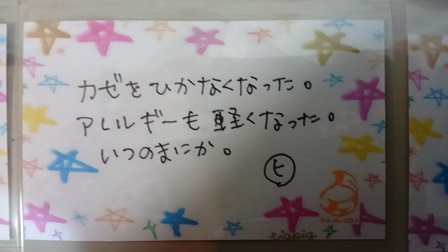 カゼをひかなくなった。
アレルギーも軽くなった。
いつのまにか。
ヒ